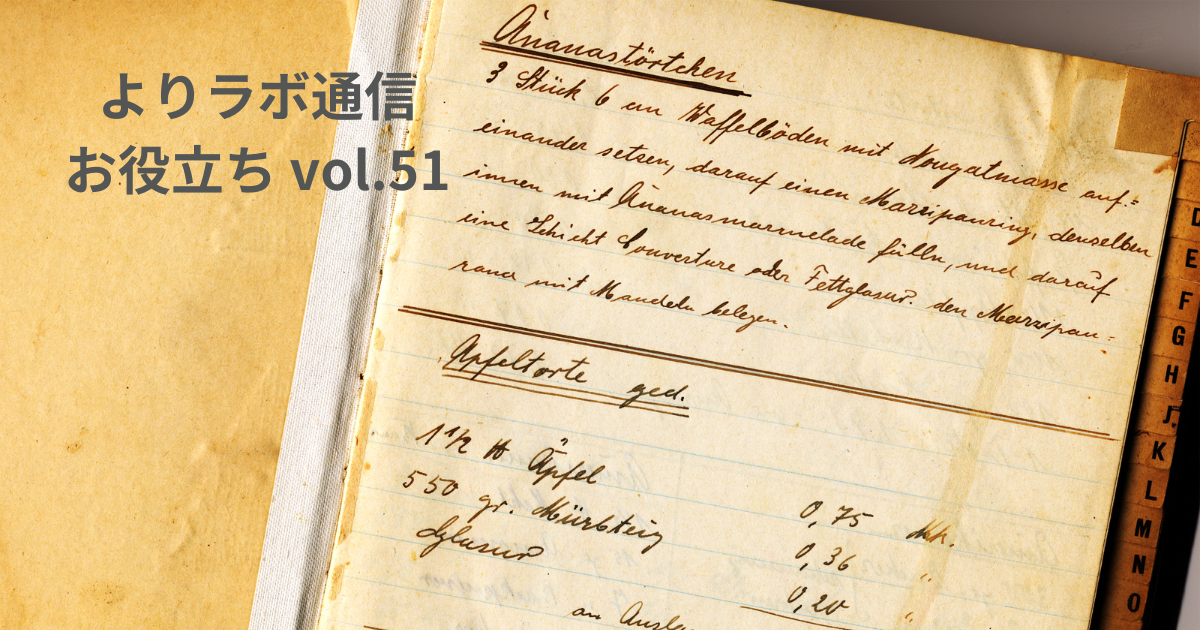 よりラボ通信
お役立ち vol.51
Ananastörtchen
3 Stück 6 cm Waffelböden mit Nougatmasse auf-
einander setzen, darauf einen Marzipanring, denselben
innen mit Ananasmarmelade fülln, und darauf
eine Schicht Couverture oder Fettglasur. den Marzipan-
rand mit Mandeln belegen.
Apfeltorte ged.
1 1/2 ℔ Äpfel 0,75 Mk.
550 gr. Mürbteig 0,36 "
Glasur 0,20 "
an
D
E
F
G
H
J
K
L
M
N
O